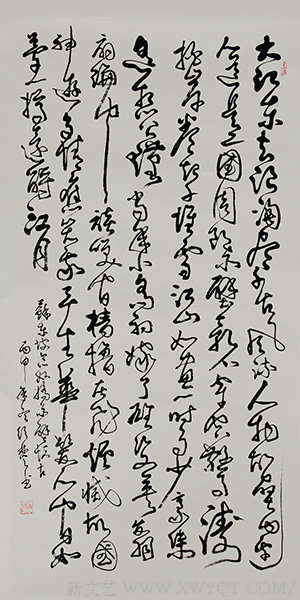 大江东去浪淘尽千古风流人物故垒西边
人道是三國周郎赤壁亂石穿空驚濤
拍岸卷起千堆雪江山如画一时多少豪杰
遥想公瑾当年小乔初嫁了雄姿英发羽
扇綸巾谈笑间樯橹灰飛煙滅故國
神遊多情應笑我早生華髮人间如
梦一樽還酹江月
蘇東坡念奴嬌赤壁怀古
丙申年冬
新文艺 WWW.XWYQT.COM